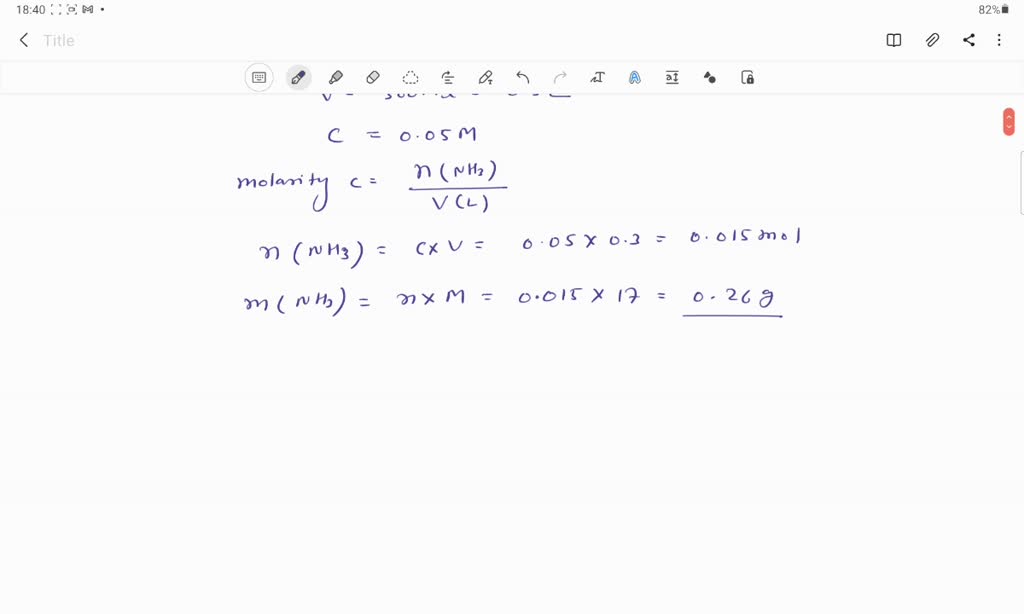 18:40
82%
Title
C = 0.05 M
molarity C = n (NH3) / V (L)
n (NH3) = C x V = 0.05 x 0.3 = 0.015 mol
m (NH3) = n x M = 0.015 x 17 = 0.26 g